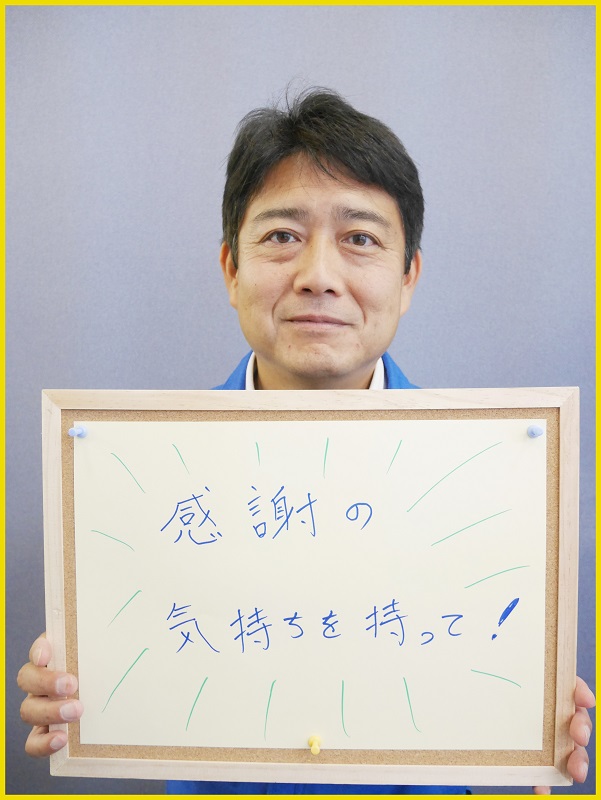 感謝の
気持ちを持って!